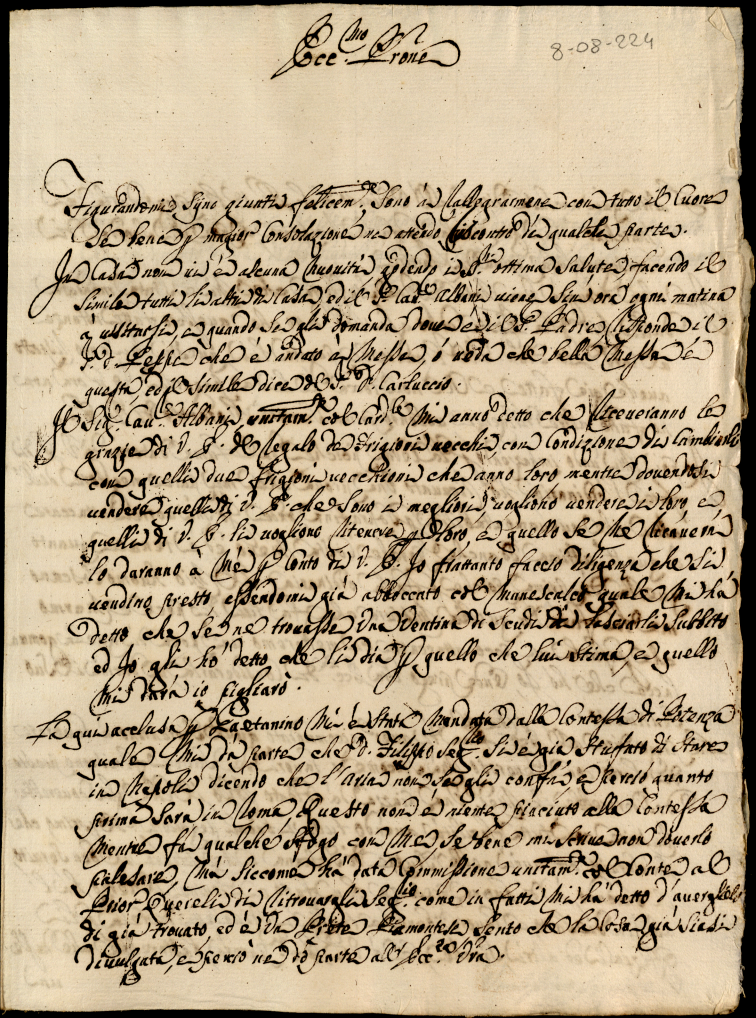 Ecc.mo Prone
8-08-224
Figurandomi siano giunti felicem.te sono à rallegrarmene con tutto il Cuore
se bene p maggior Consolazione ne attendo riscontro di qualche parte.
In Casa non vi è alcuna Novità, godendo i SS.ri ottima salute, facendo il
simile tutti li altri di Casa, ed il S.r Cav.re Albani viene sin ora ogni matina
à visitarsi, e quando se gli domanda dove è il S.r Padre risponde il
S.r d. Peppe che è andato à Messa, ò veda che bella Messa è
questa, ed il simile dice il S.r D. Carluccio.
Il Sig.r Cav.re Albani unitam.te col Card.le Mi anno detto che riceveranno le
grazie di V. E. del regalo de Frigioni vecchi, con Condizione di Cambiarli
con quelli due frigioni vecchioni che anno loro mentre dovendosi
vendere quelli di V. E. che sono i megliori, vogliono vendere i loro, e
quelli di V. E. li vogliono ritenere p loro, e quello se ne ricaverà
lo daranno à Mé p Conto di V. E. Io frattanto faccio diligenza che si
vendino presto essendomi già abboccato col Munescalco quale Mi hà
detto che se ne trovasse Una Ventina di Scudi di lasciarli subbito
ed Io gli hò detto che li dia p quello che lui stima, e quello
Mi darà io pigliarò.
La qui aclusa p Gaetanino Mi è stata Mandata dalla Contessa di Potenza
quale Mi dà parte che D. Filippo Seg.rio si è già stufato di stare
in Napoli dicendo che l'Aria non se gli confà, e perciò quanto
prima sarà in Roma, Questo non è niente piaciuto alla Contessa
Mentre fà qualche sfogo con Me se bene mi scrive non doverlo
palesare, Mà siccome hà data Commissione unitam.te col Conte al
Prior Quereli di ritrovargli Seg.rio come in fatti Mi hà detto d'averglielo
di già trovato, ed è Un Prete Piamontese sento che la Cosa già siasi
divulgata, e perciò ne dò parte all' Ecc.za Vra.